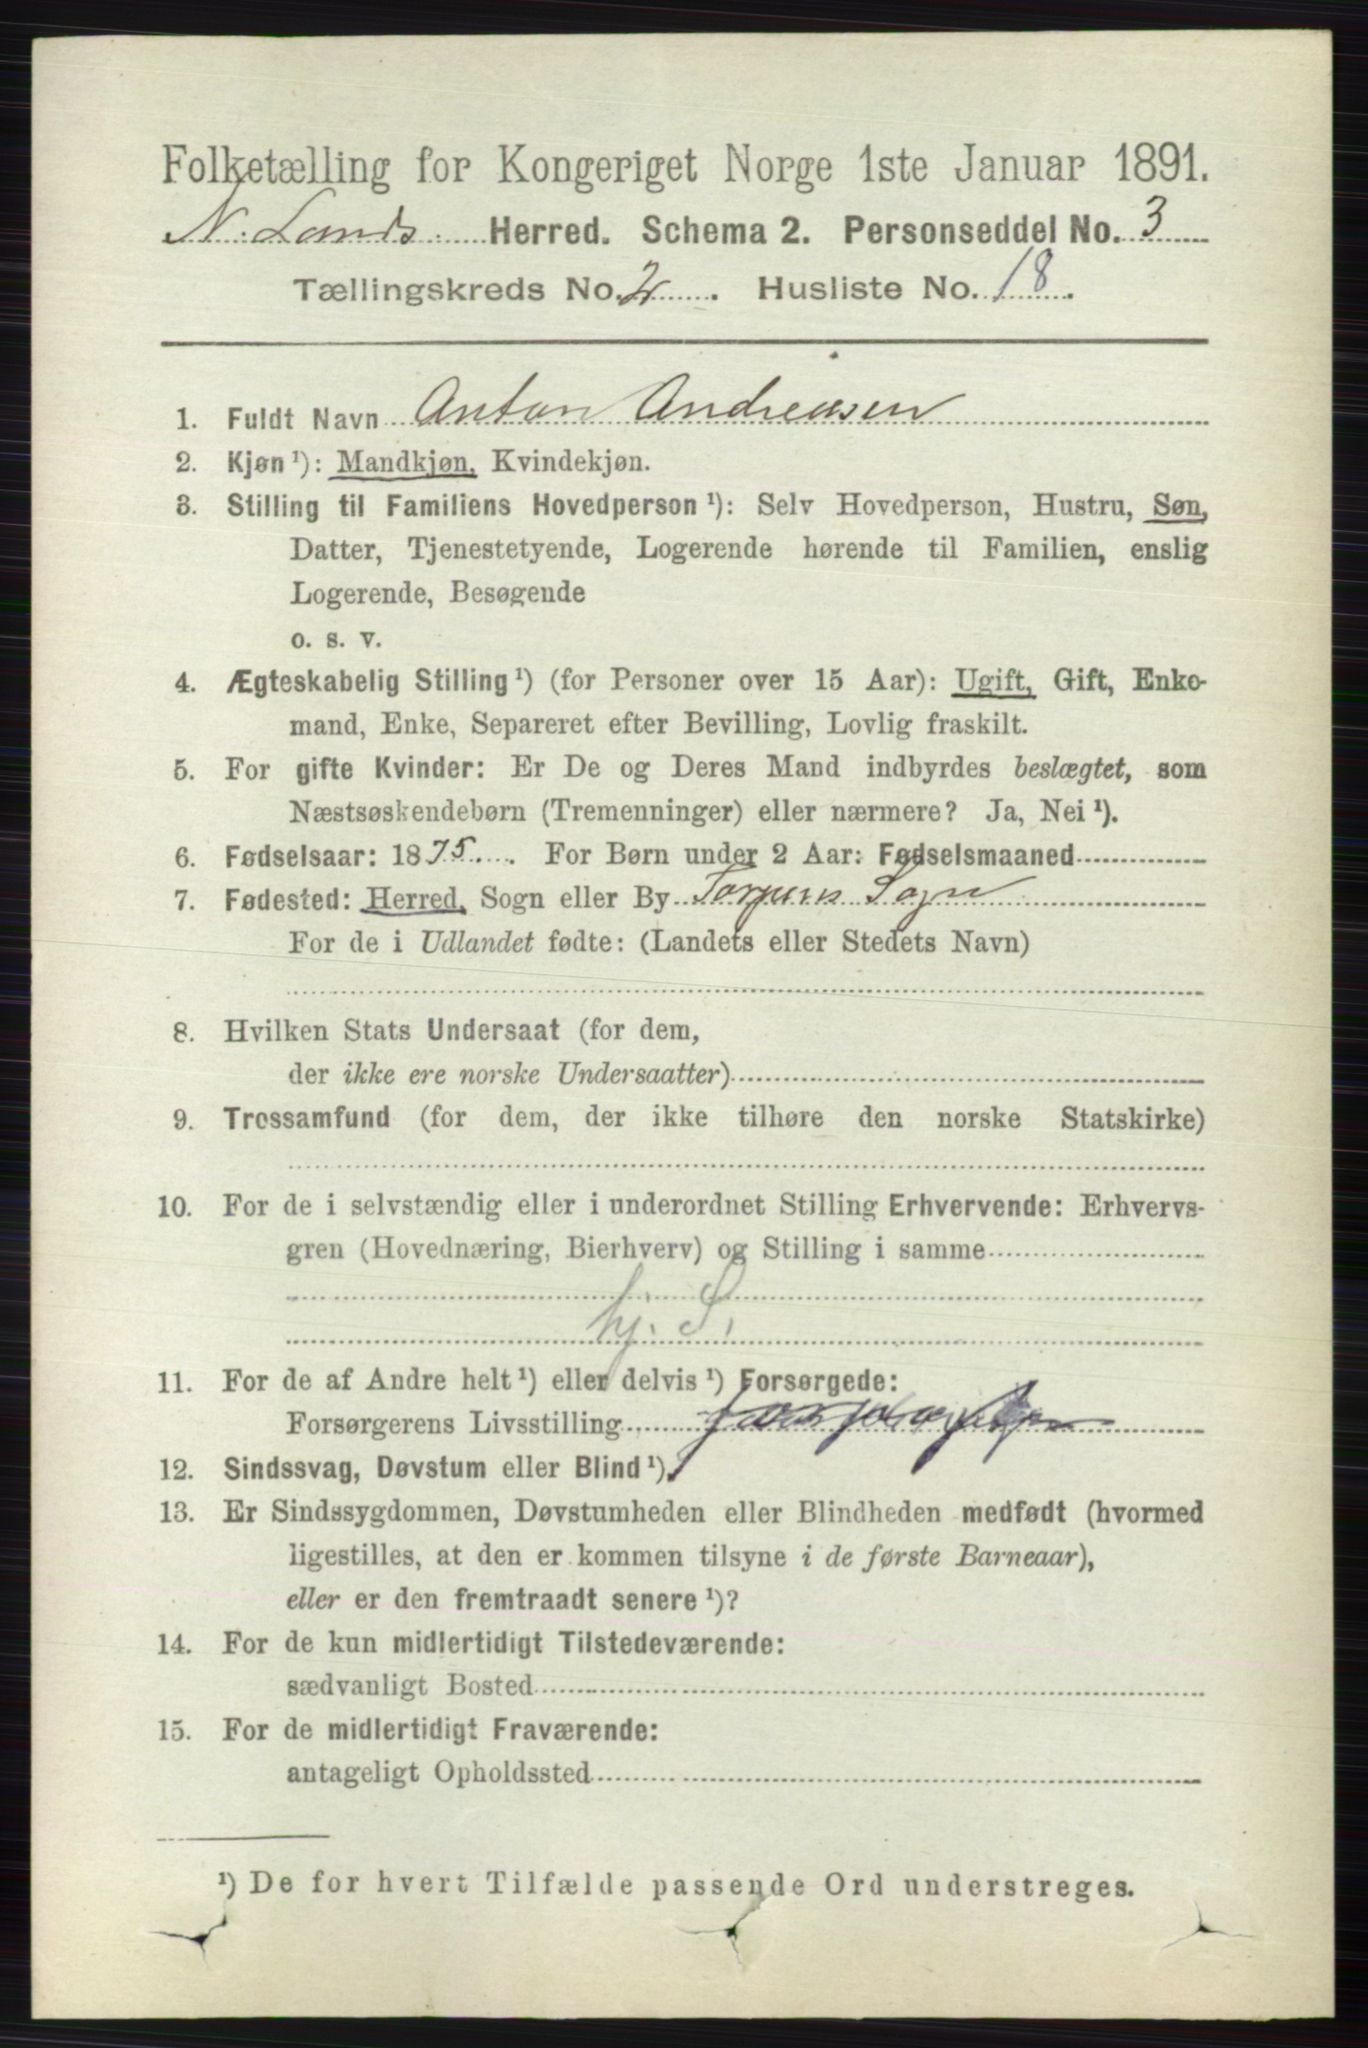 Folketælling for Kongeriget Norge 1ste Januar 1891.
N. Lands Herred. Schema 2. Personseddel No. 3
Tællingskreds No. 2. Husliste No. 18.
1. Fuldt Navn Anton Andreasen
2. Kjøn ¹): Mandkjøn, Kvindekjøn.
3. Stilling til Familiens Hovedperson ¹): Selv Hovedperson, Hustru, Søn,
Datter, Tjenestetyende, Logerende hørende til Familien, enslig
Logerende, Besøgende
o. s. v.
4. Ægteskabelig Stilling ¹) (for Personer over 15 Aar): Ugift, Gift, Enke-
mand, Enke, Separeret efter Bevilling, Lovlig fraskilt.
5. For gifte Kvinder: Er De og Deres Mand indbyrdes beslægtet, som
Næstsøskendebørn (Tremenninger) eller nærmere? Ja, Nei ¹).
6. Fødselsaar: 1875. For Børn under 2 Aar: Fødselsmaaned
7. Fødested: Herred, Sogn eller By Torpens Sogn
For de i Udlandet fødte: (Landets eller Stedets Navn)
8. Hvilken Stats Undersaat (for dem,
der ikke ere norske Undersaatter)
9. Trossamfund (for dem, der ikke tilhøre den norske Statskirke)
10. For de i selvstændig eller i underordnet Stilling Erhvervende: Erhvervs-
gren (Hovednæring, Bierhverv) og Stilling i samme
hj. S.
11. For de af Andre helt ¹) eller delvis ¹) Forsørgede:
Forsørgerens Livsstilling
12. Sindssvag, Døvstum eller Blind ¹).
13. Er Sindssygdommen, Døvstumheden eller Blindheden medfødt (hvormed
ligestilles, at den er kommen tilsyne i de første Barneaar),
eller er den fremtraadt senere ¹)?
14. For de kun midlertidigt Tilstedeværende:
sædvanligt Bosted
15. For de midlertidigt Fraværende:
antageligt Opholdssted
¹) De for hvert Tilfælde passende Ord understreges.